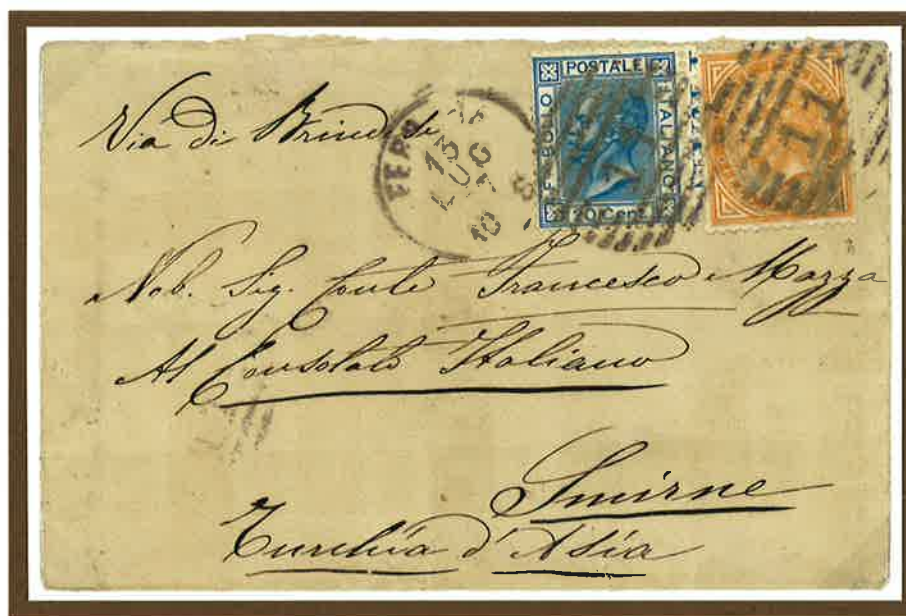 Via di Brindisi
FER
13
LUG
10
POSTALE
BOLLO
ITALIANO
20 Cent
Nob. Sig. Conte Francesco Mazza
Al Consolato Italiano
Smirne
Turchia d'Asia